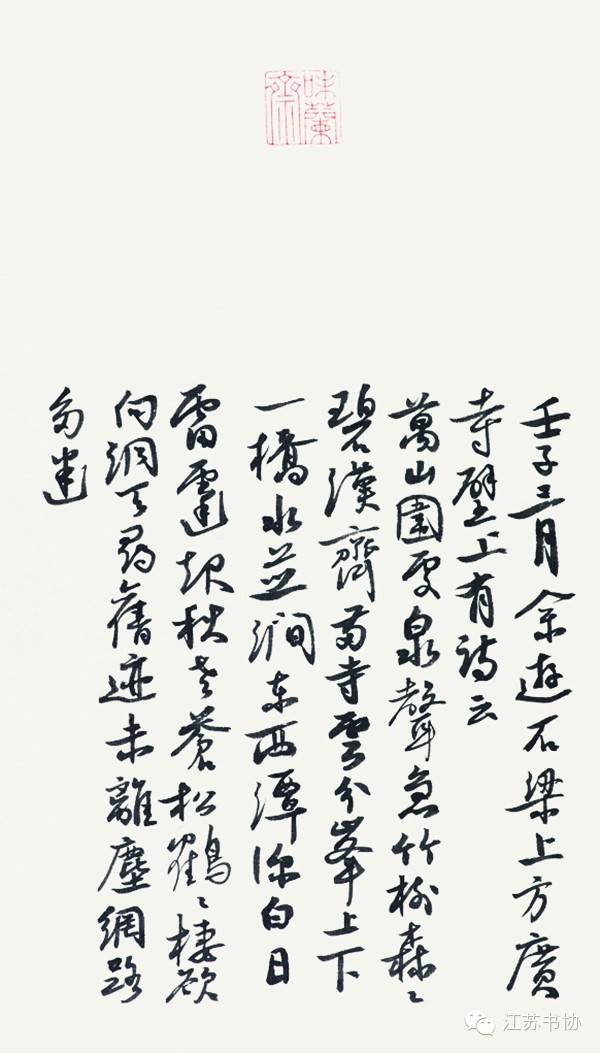 味蘭齋
壬子三月余遊石梁上方廣
寺壁上有詩云
萬山圍處泉聲急竹樹森〻
碧漢齊兩寺雲分峯上下
一橋水並澗東西潭深白日
雷霆起秋老蒼松鶴〻棲欲
向洞天尋舊迹未離塵網路
多迷
江苏书协